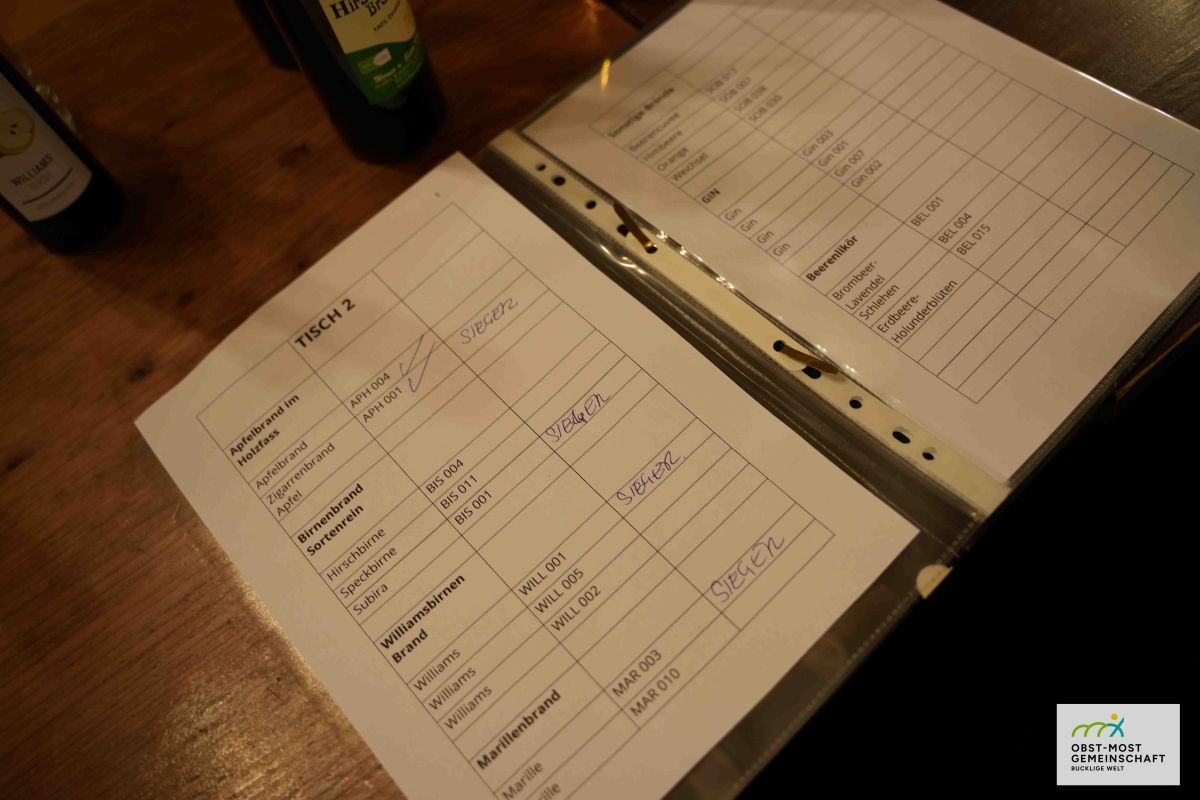 Hirs
Bra
100% D
WILLIAMS
TISCH 2
Apfelbrand im
Holzfass
Apfelbrand
Zigarrenbrand APH 004 SIEGER
Apfel APH 001
Birnenbrand
Sortenrein
Hirschbirne BIS 004
Speckbirne BIS 011 SIEGER
Subira BIS 001
Williamsbirnen
Brand
Williams WILL 001 SIEGER
Williams WILL 005
Williams WILL 002
Marillenbrand
Marille MAR 003 SIEGER
Marille MAR 010
Sonstige Brände
Beerencuvee SOB 017
Himbeere SOB 007
Orange SOB 038
Weichsel SOB 030
GIN
Gin Gin 003
Gin Gin 001
Gin Gin 007
Gin Gin 002
Beerenlikör
Brombeer-
Lavendel BEL 001
Schlehen BEL 004
Erdbeere-
Holunderblüten BEL 015
OBST-MOST
GEMEINSCHAFT
BUCKLIGE WELT